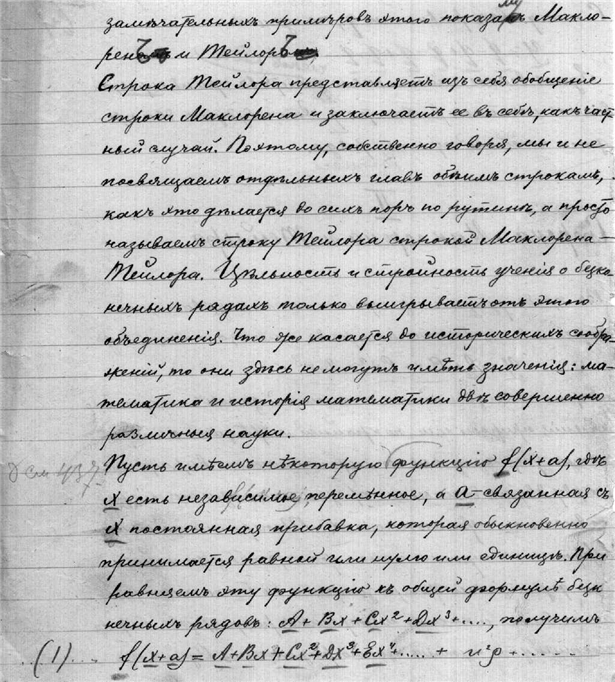 замѣчательныхъ примѣровъ этого показалъ Макло-
ренъ и Тейлоръ.
Строка Тейлора представляетъ изъ себя обобщеніе
строки Маклорена и заключаетъ ее въ себѣ, какъ част
ный случай. Поэтому, собственно говоря, мы и не
посвящаемъ отдѣльныхъ главъ обѣимъ строкамъ,
какъ это дѣлается до сихъ поръ по рутинѣ, а просто
называемъ строку Тейлора строкой Маклорена-
Тейлора. Цѣльность и стройность ученія о безко
нечныхъ рядахъ только выигрываетъ отъ этого
объединенія. Что же касается до историческихъ сообра
женій, то они здѣсь не могутъ имѣть значенія: ма-
тематика и исторія математики двѣ совершенно
различныя науки.
Пусть имѣемъ нѣкоторую функцію f(x+a), гдѣ
x есть независимое перемѣнное, а a - связанная съ
x постоянная прибавка, которая обыкновенно
принимается равной или нулю или единицѣ. При
равняемъ эту функцію къ общей формулѣ безк
нечныхъ рядовъ: A+Bx+Cx²+Dx³+...., получимъ
..(1)... f(x+a) = A+Bx+Cx²+Dx³+Ex⁴+..... +